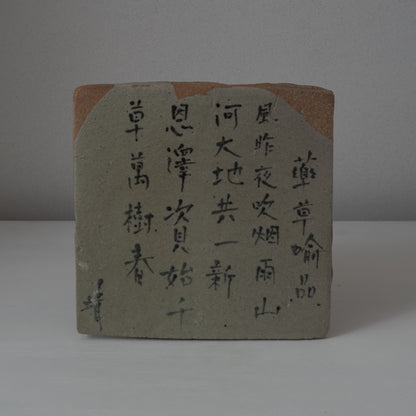 藥草喻品
風昨夜吹烟雨山
河大地共一新
恩澤次貝始千
草萬樹春